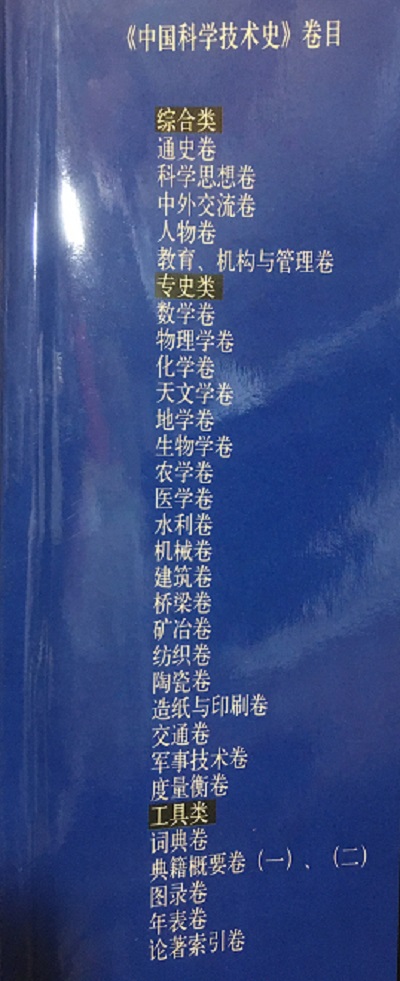 《中国科学技术史》卷目
综合类
通史卷
科学思想卷
中外交流卷
人物卷
教育、机构与管理卷
专史类
数学卷
物理学卷
化学卷
天文学卷
地学卷
生物学卷
农学卷
医学卷
水利卷
机械卷
建筑卷
桥梁卷
矿冶卷
纺织卷
陶瓷卷
造纸与印刷卷
交通卷
军事技术卷
度量衡卷
工具类
词典卷
典籍概要卷（一）、（二）
图录卷
年表卷
论著索引卷